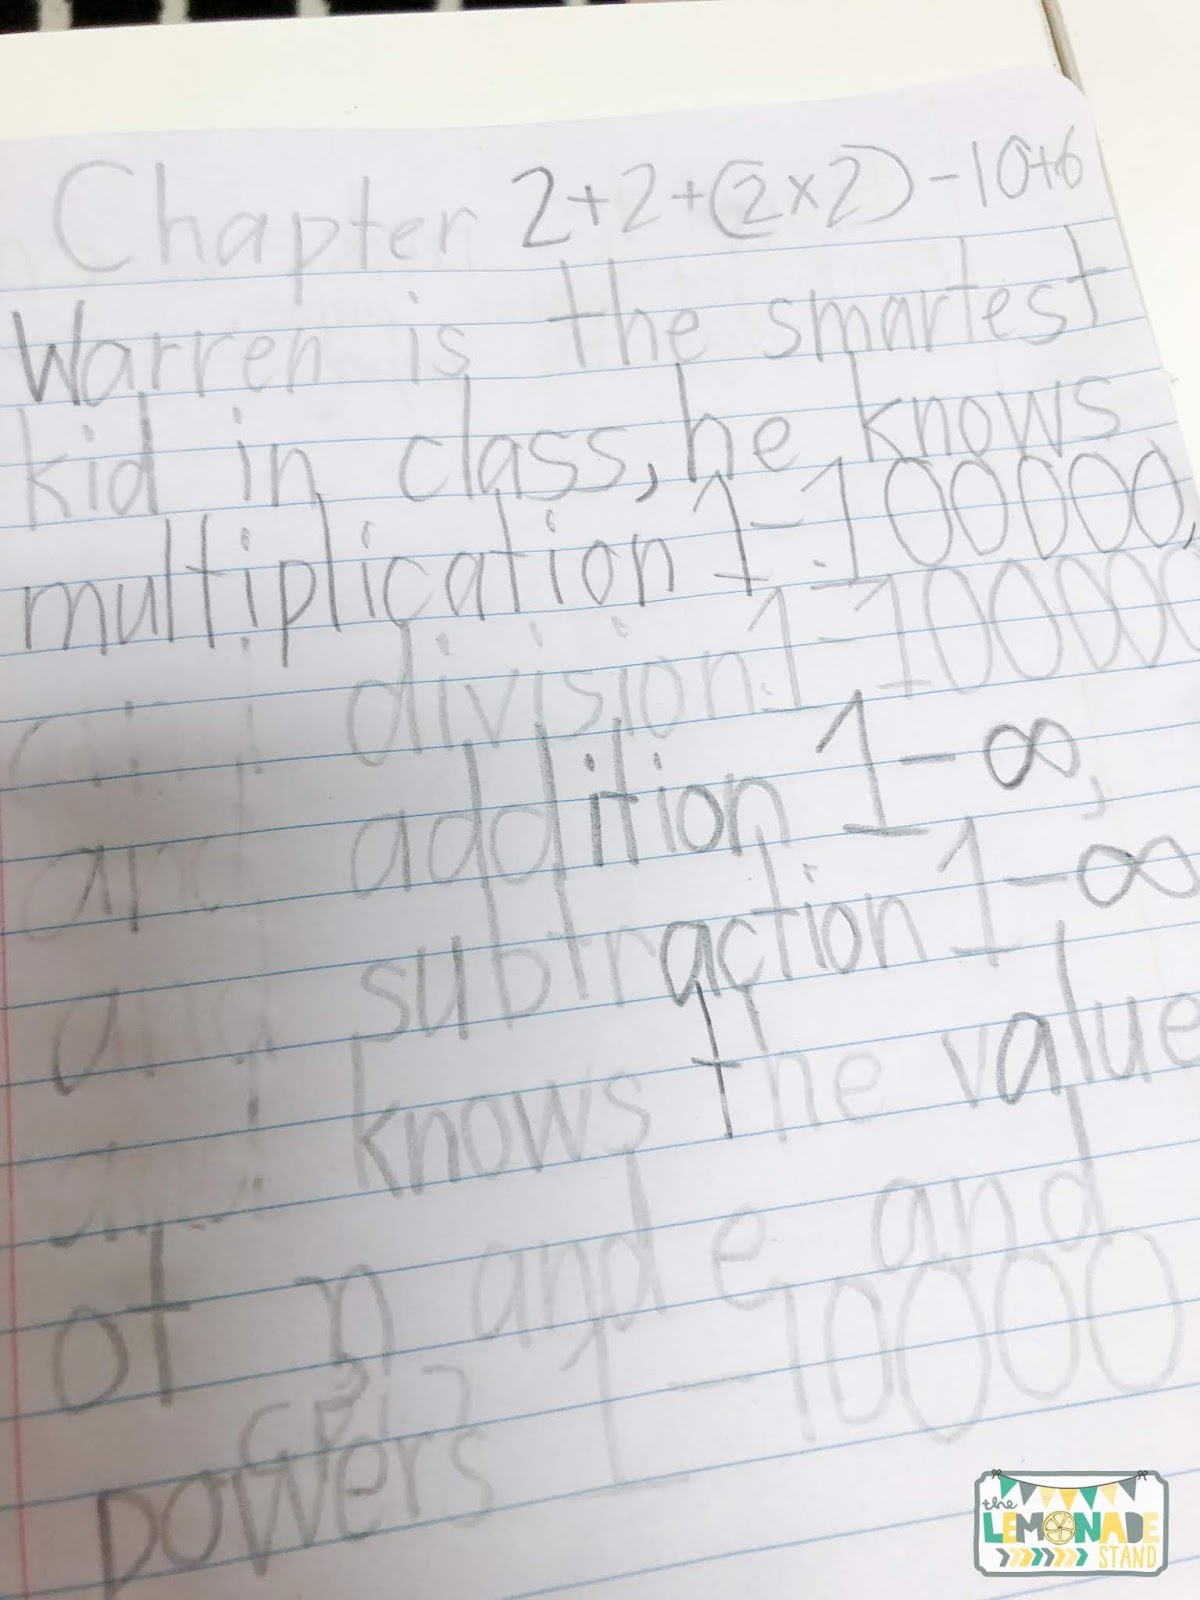 Chapter 2+2+(2×2)-10+6
Warren is the smartest
kid in class, he knows
multiplication 1-100000,
and division 1-100000
and addition 1-∞,
and subtraction 1-∞
and knows the value
of π and e and
powers 1-10000
the
LEMONADE
STAND